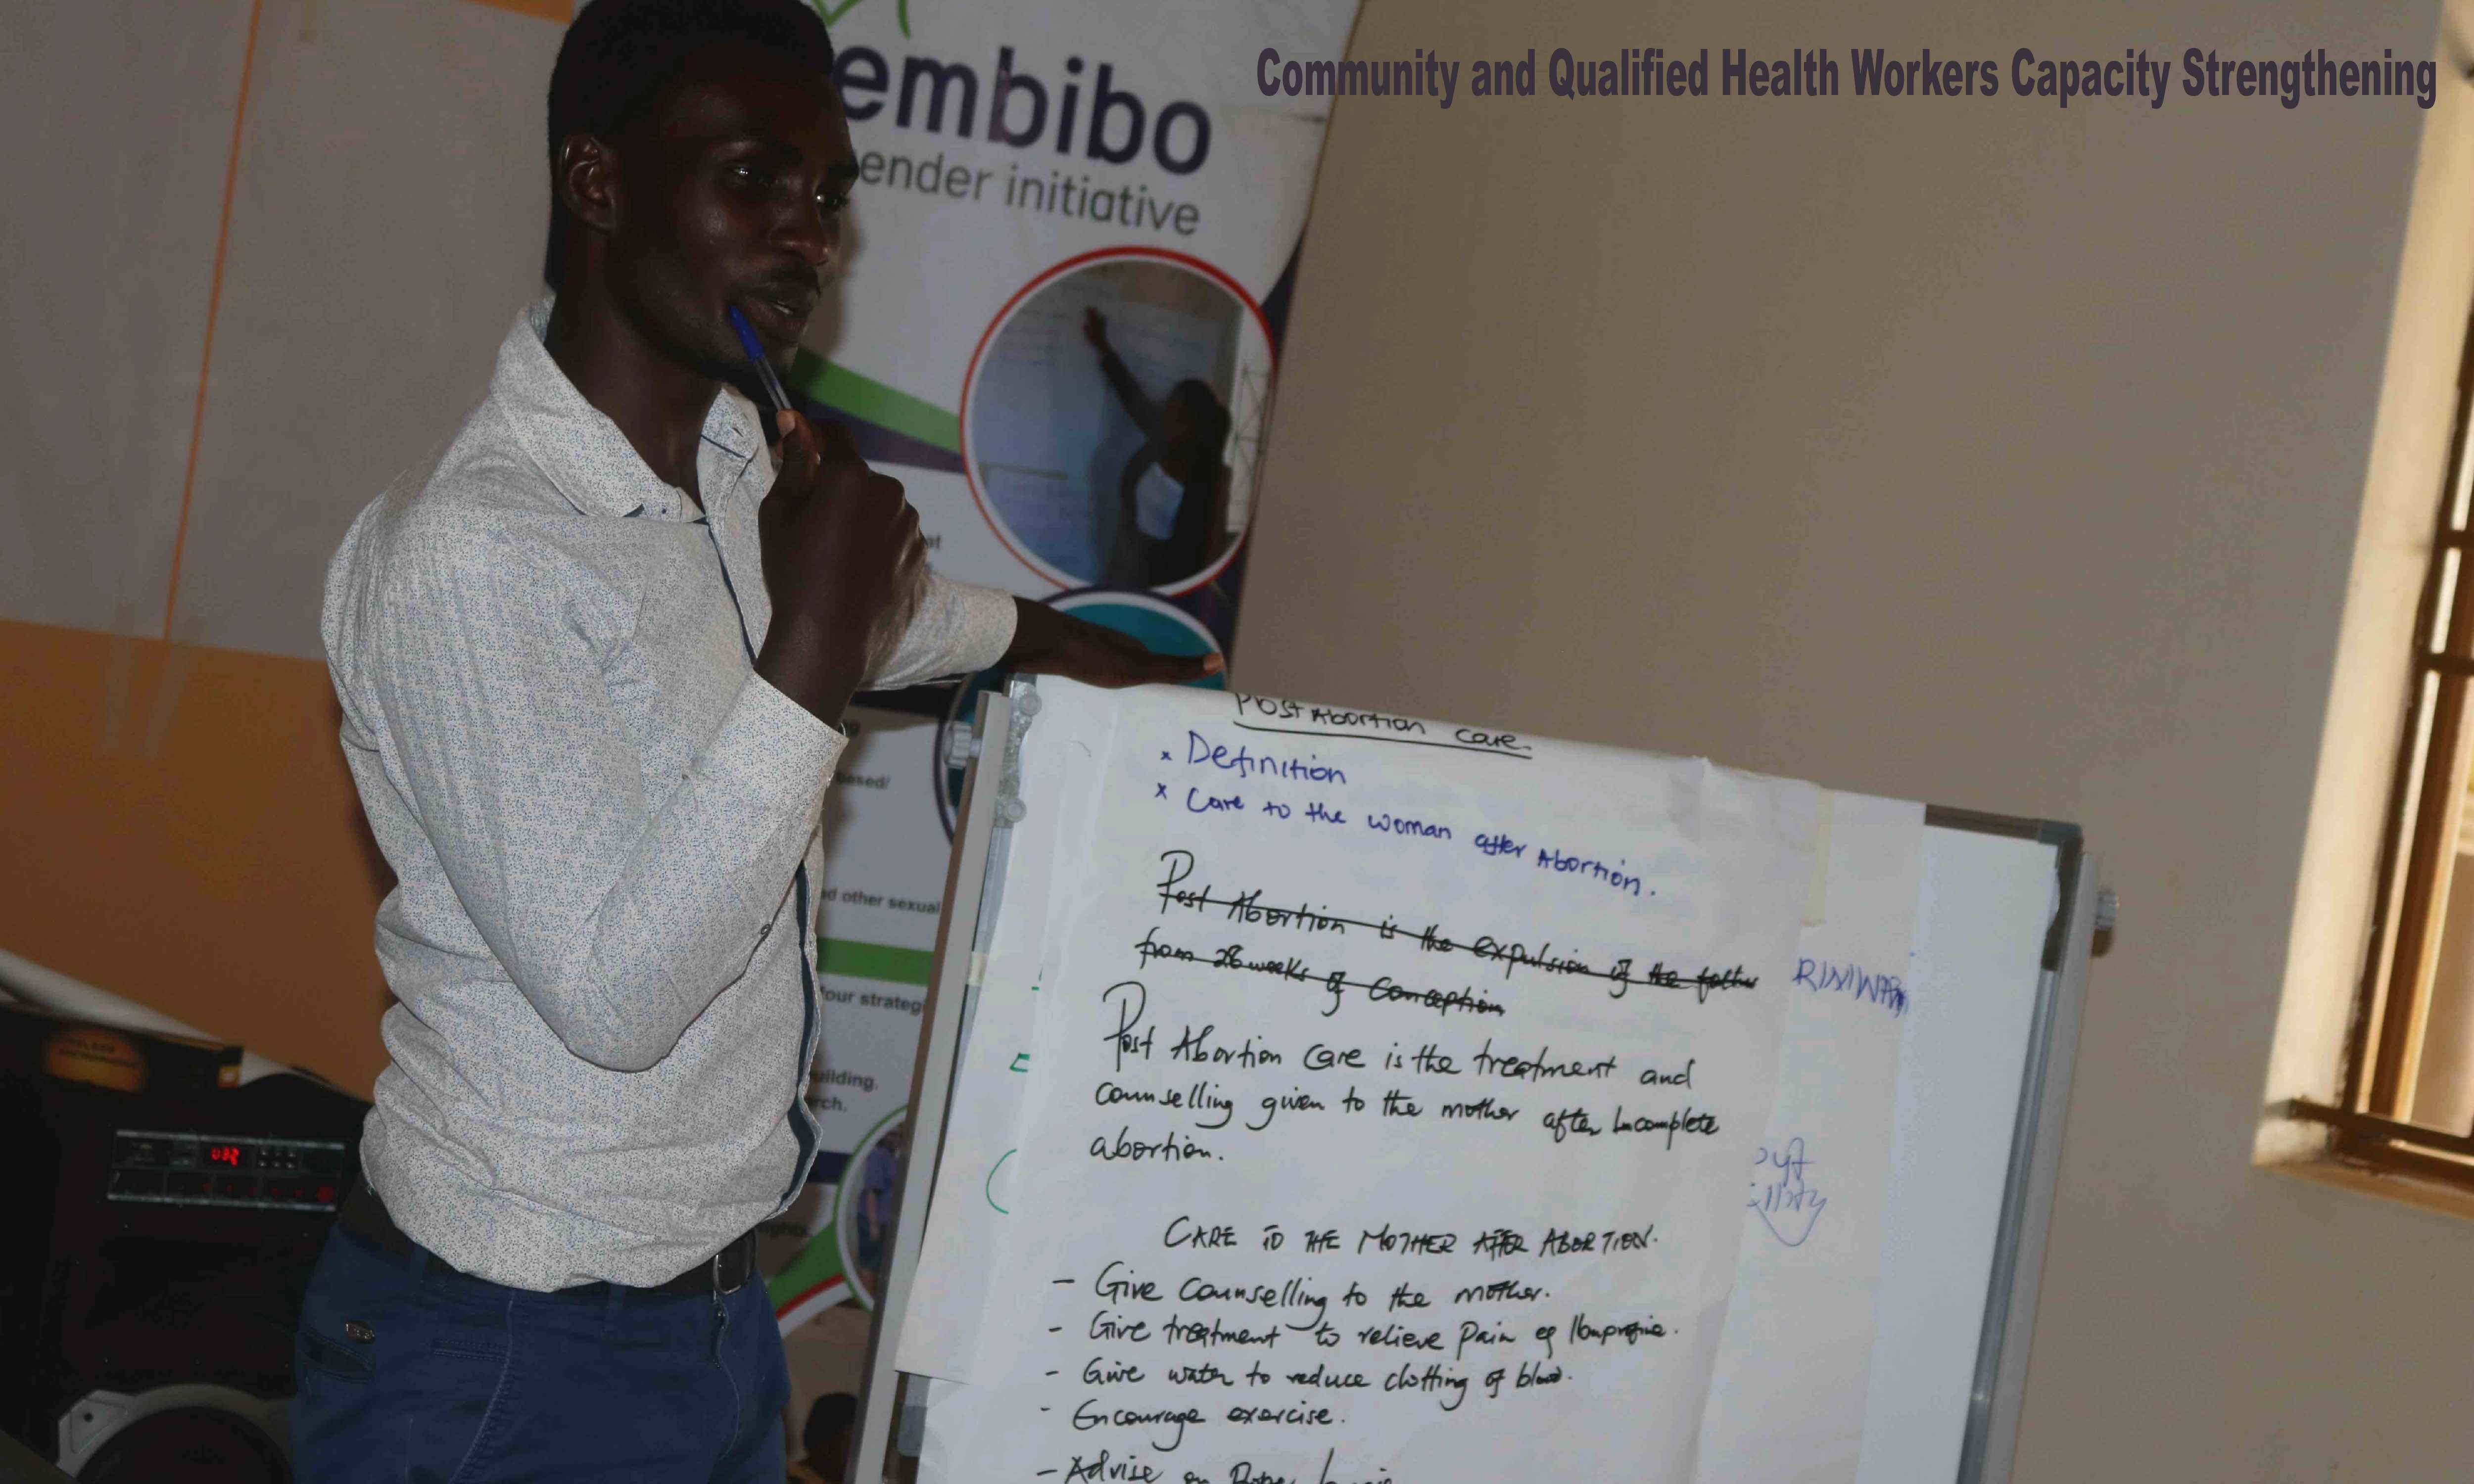 Community and Qualified Health Workers Capacity Strengthening
embibo
ender initiative
at
based/
nd other sexual
Our strateg
uilding.
rch.
ights.
Post Abortion care.
× Definition
× Care to the woman after Abortion.
Post Abortion is the expulsion of the
from 28 weeks of Conception
Post Abortion Care is the treatment and
counselling given to the mother after Incomplete
abortion.
CARE TO THE MOTHER AFTER ABORTION.
- Give counselling to the mother.
- Give treatment to relieve pain eg
- Give water to reduce clotting of blood.
- Encourage exercise.
- Advise on